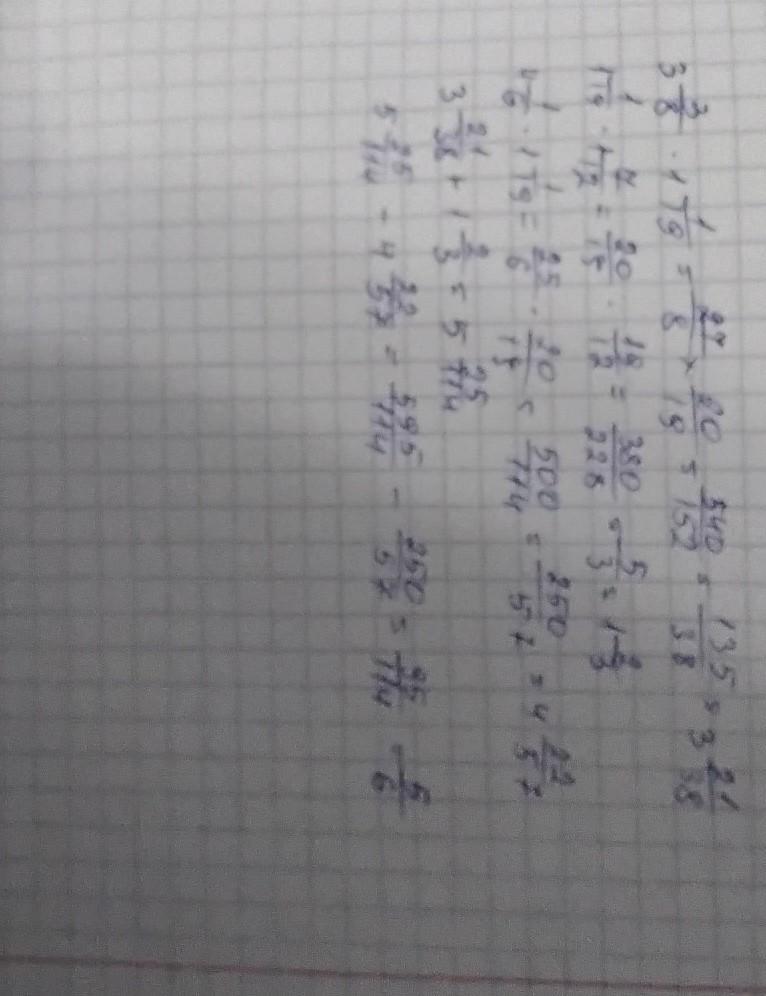 3 3/8 · 1 1/19 = 27/8 × 20/19 = 540/152 = 135/38 = 3 21/38
1 1/19 · 1 7/12 = 20/19 · 19/12 = 380/228 = 5/3 = 1 2/3
4 1/6 · 1 1/19 = 25/6 · 20/19 = 500/114 = 250/57 = 4 22/57
3 21/38 + 1 2/3 = 5 25/114
5 25/114 - 4 22/57 = 595/114 - 250/57 = 95/114 - 5/6